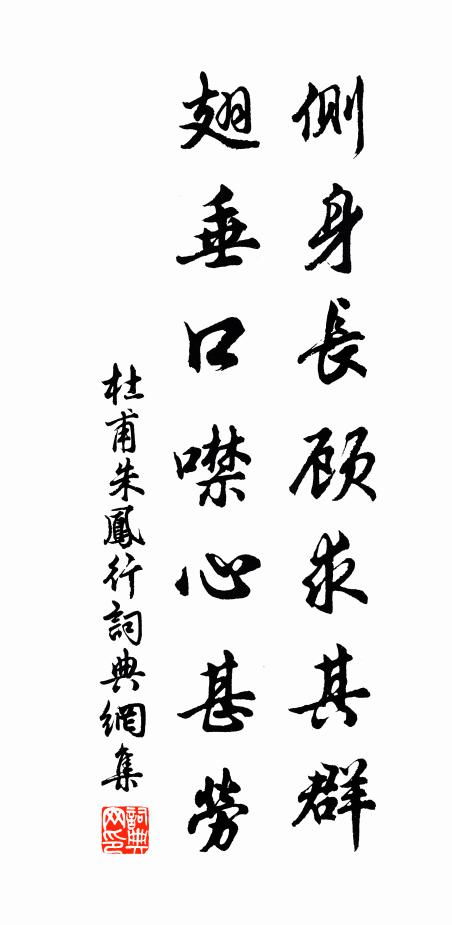 側身長顾求其群
翅垂口噤心甚勞
杜甫朱鳳行詞典網集
詞典网印